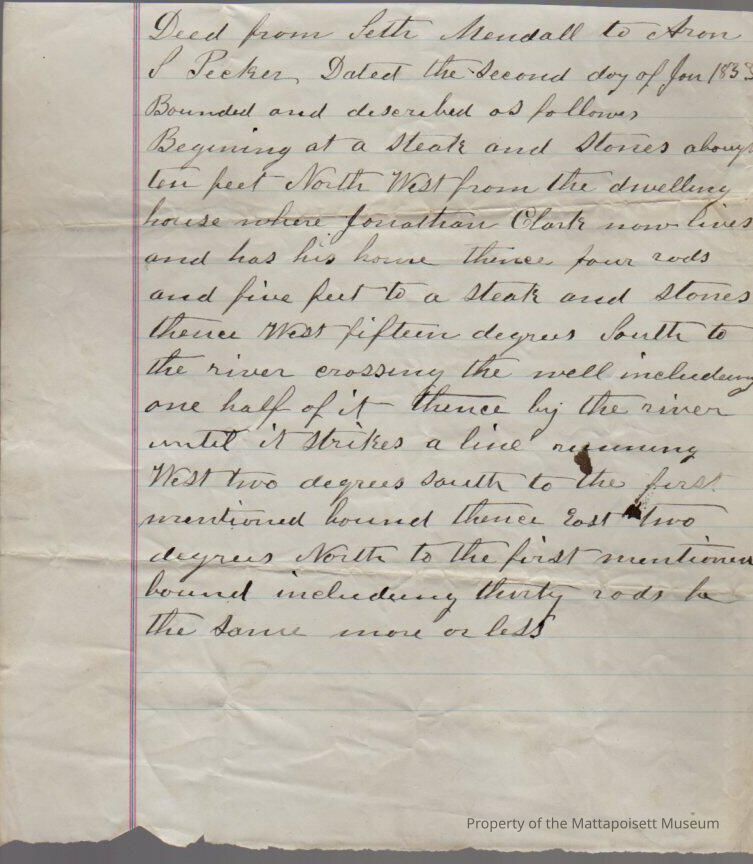 Deed from Seth Mendall to Aron
S Pecker, Dated the Second day of Jan 1833
Bounded and described as follows
Begining at a steak and stones about
ten feet North West from the dwelling
house where Jonathan Clark now lives
and has his home thence four rods
and five feet to a steak and stones
thence West fifteen degrees South to
the river crossing the well including
one half of it thence by the river
until it strikes a line running
West two degrees south to the first
mentioned bound thence East two
degrees North to the first mentioned
bound including thirty rods be
the same more or less
Property of the Mattapoisett Museum